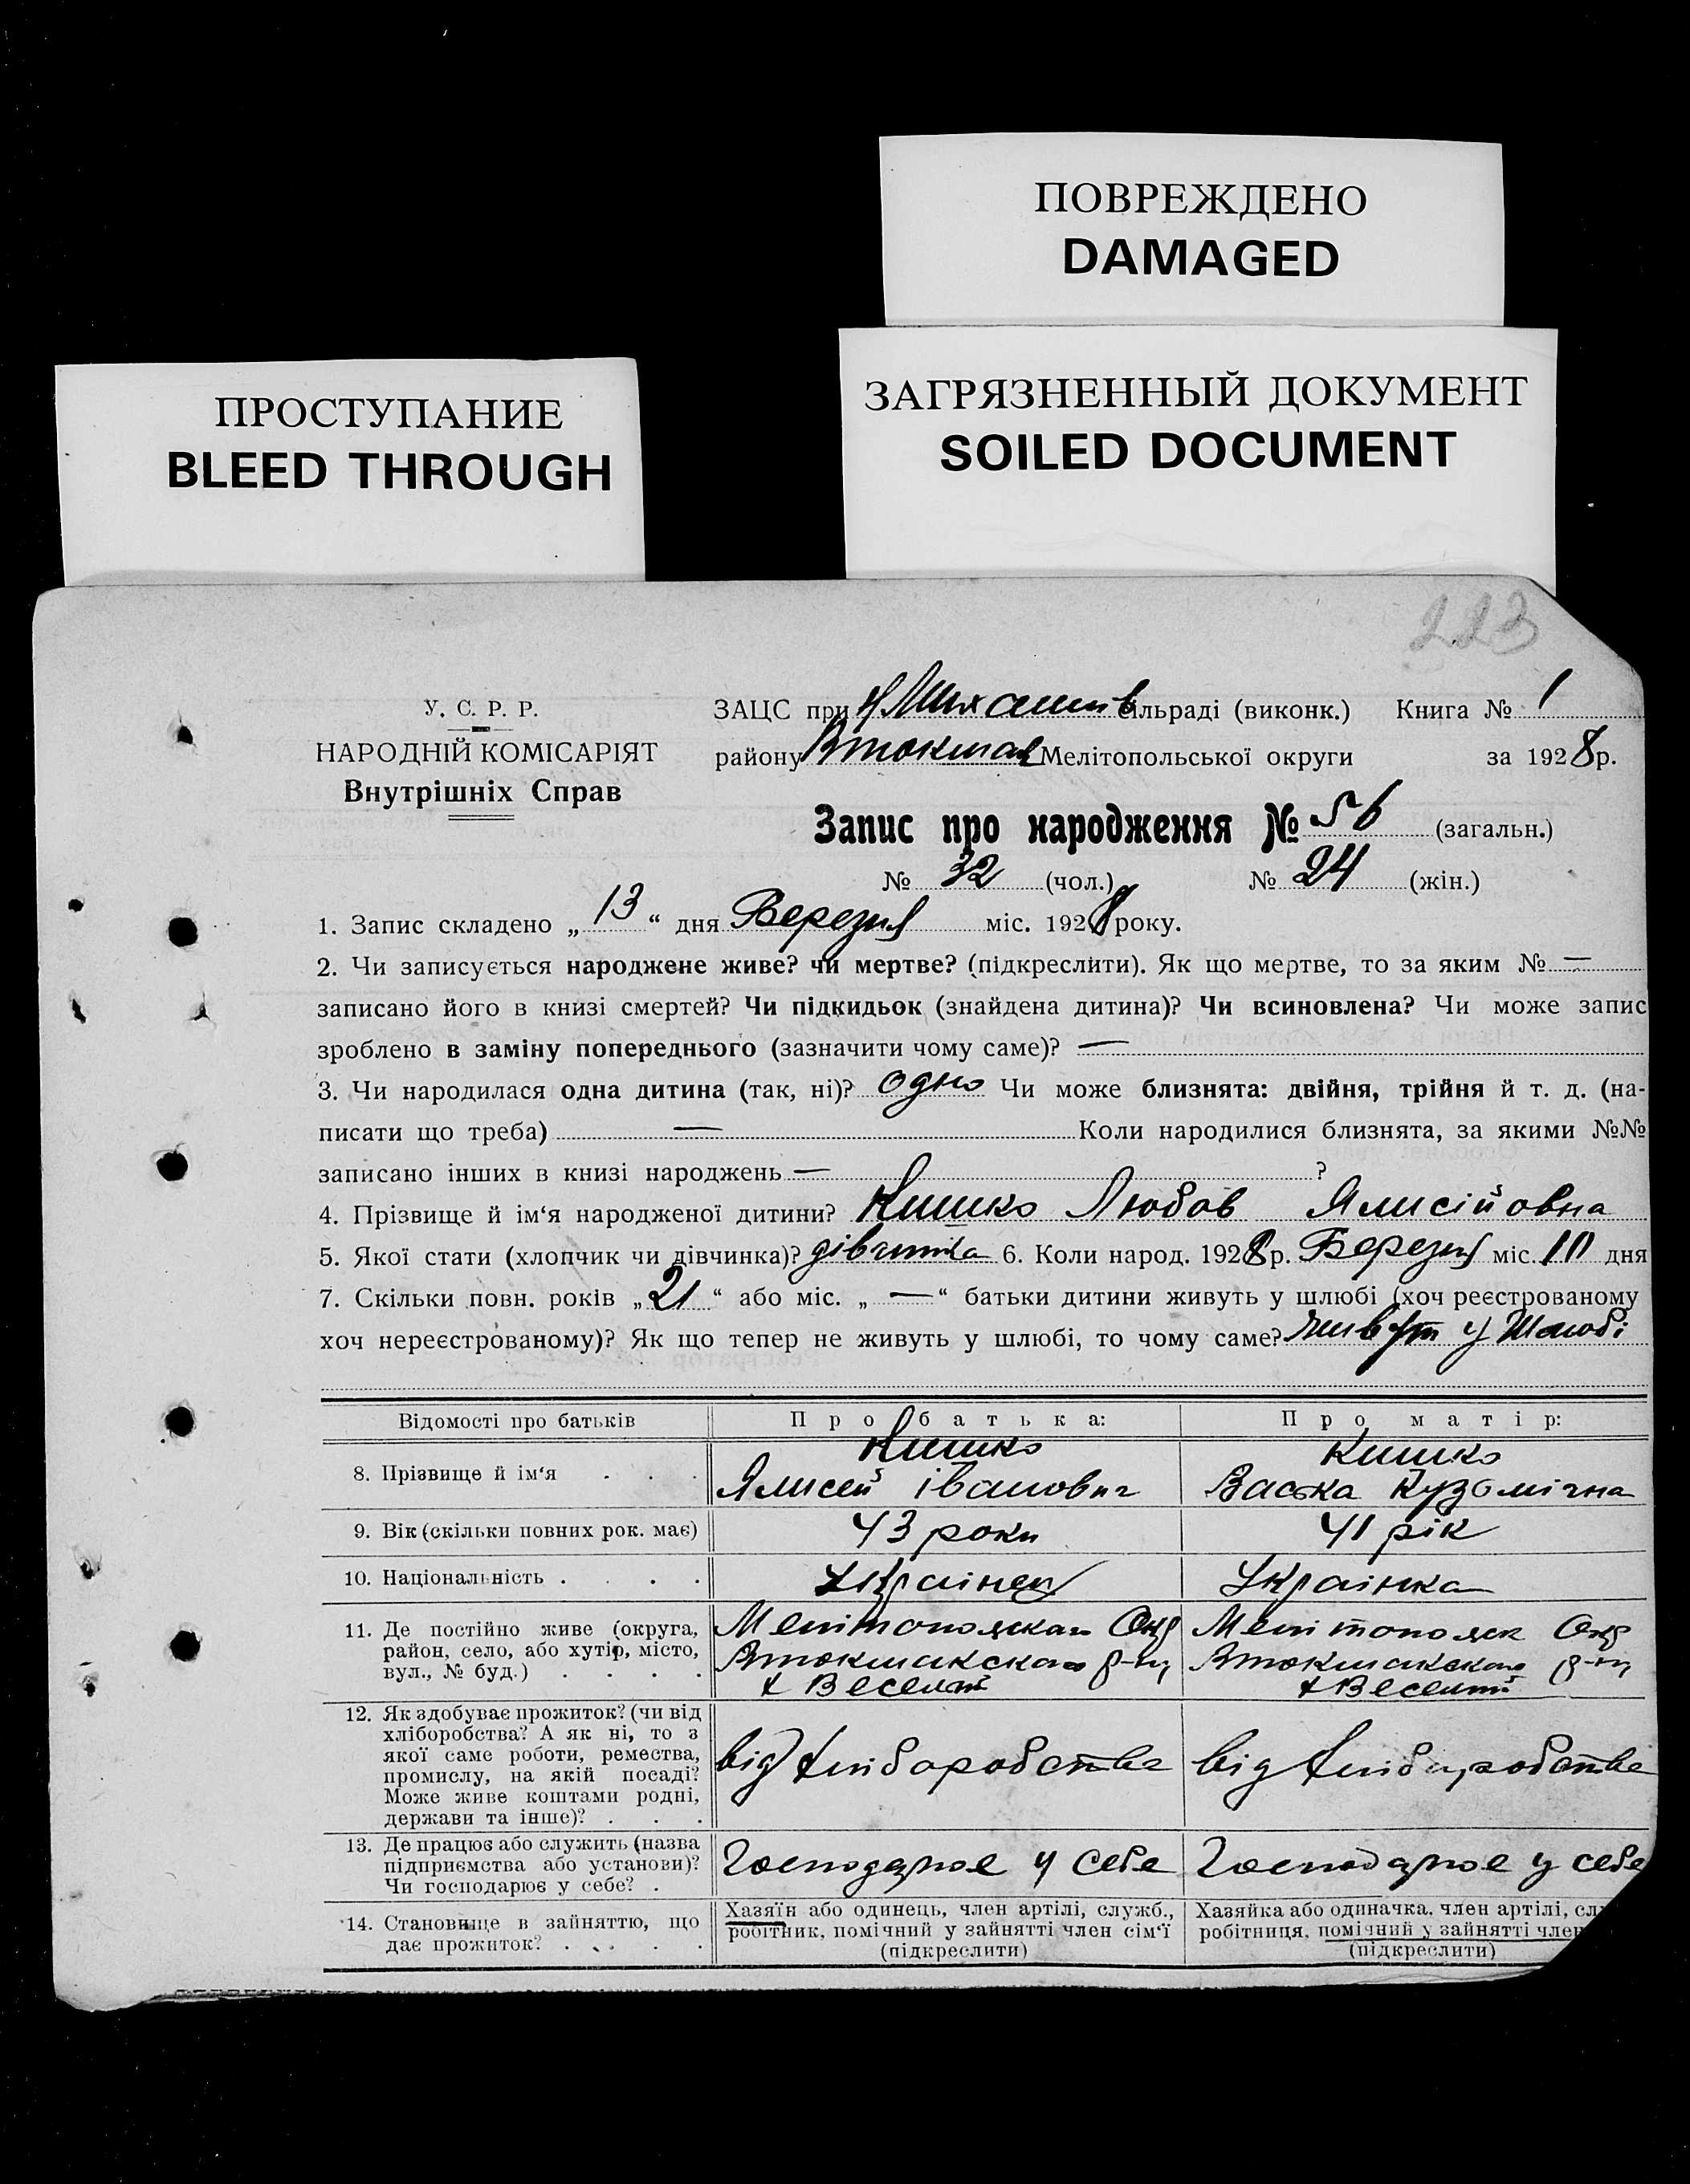 ПОВРЕЖДЕНО
DAMAGED
ПРОСТУПАНИЕ
BLEED THROUGH
ЗАГРЯЗНЕННЫЙ ДОКУМЕНТ
SOILED DOCUMENT
223
У. С. Р. Р.
НАРОДНІЙ КОМІСАРІЯТ
Внутрішніх Справ
ЗАЦС при сільраді (виконк.) Книга № 1
району Втокмац Мелітопольської округи за 1928 р.
Запис про народження № 56 (загальн.)
№ 32 (чол.) № 24 (жін.)
1. Запис складено „ 13 “ дня Березня міс. 1928 року.
2. Чи записується народжене живе? чи мертве? (підкреслити). Як що мертве, то за яким № —
записано його в книзі смертей? Чи підкидьок (знайдена дитина)? Чи всиновлена? Чи може запис
зроблено в заміну попереднього (зазначити чому саме)? —
3. Чи народилася одна дитина (так, ні)? одно Чи може близнята: двійня, трійня й т. д. (на-
писати що треба) — Коли народилися близнята, за якими №№
записано інших в книзі народжень — ?
4. Прізвище й ім‘я народженої дитини? Кишко Любов Ялисійовна
5. Якої стати (хлопчик чи дівчинка)? дівчинка 6. Коли народ. 1928 р. Березня міс. 10 дня
7. Скільки повн. років „ 21 “ або міс. „ — “ батьки дитини живуть у шлюбі (хоч реєстрованому
хоч нереєстрованому)? Як що тепер не живуть у шлюбі, то чому саме? живут у Шлюбі
Відомості про батьків Про батька: Про матір:
8. Прізвище й ім‘я Кишко Ялисей іванович Кишко Васька Кузомічна
9. Вік (скільки повних рок. має) 43 роки 41 рік
10. Національність Українец Українка
11. Де постійно живе (округа,
район, село, або хутір, місто,
вул., № буд.)
Мелітополскаи Окр Мелітополск Окр
Втокмакскаго р-ну Втокмакскаго р-ну
х Веселий х Веселий
12. Як здобуває прожиток? (чи від
хліборобства? А як ні, то з
якої саме роботи, ремества,
промислу, на якій посаді?
Може живе коштами родні,
держави та інше)?
від хлібаробства від хлібаробства
13. Де працює або служить (назва
підприємства або установи)?
Чи господарює у себе?
Господарює у себе Господарює у себе
14. Становище в зайняттю, що
дає прожиток?
Хазяїн або одинець, член артілі, служб.,
робітник, помічний у зайнятті член сім‘ї
(підкреслити)
Хазяйка або одиначка. член артілі, сл
робітниця, помічний у зайнятті член
(підкреслити)